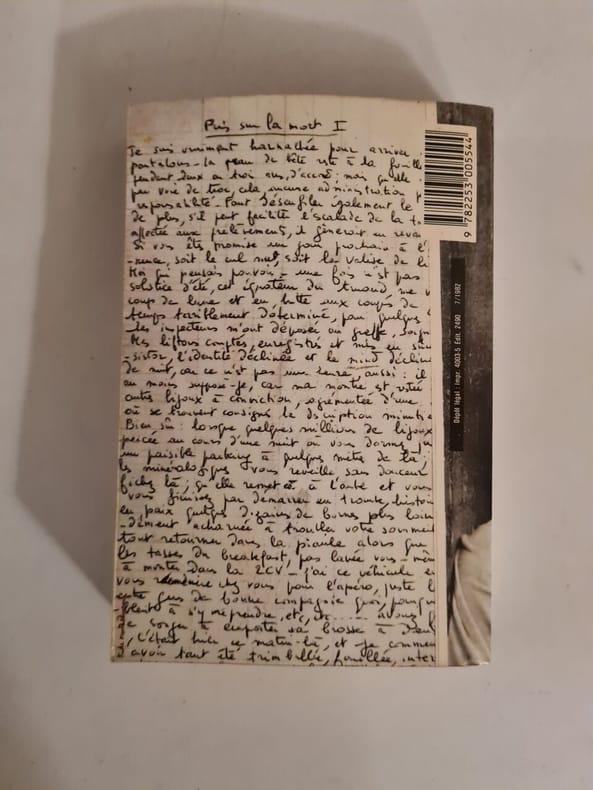 Puis sur la mort I
Je suis vraiment harnachée pour arriver
pantalons - la peau de bête est à la fouille
pendant deux ou trois ans, d'accord ; mais qu'elle
peu voie de troc, cela, aucune administration
responsabilité - Pont désenfiler également le
de plus, s'il peut faciliter l'escalade de la
affectée aux prélèvements, il gênerait en
Si vous êtes promise un jour prochain à l'
soit le cul nul, soit la valise de
Moi qui pensais pouvoir - une fois n'est pas
solstice d'été, cet
coup de lune et en butte aux coups de
temps terriblement déterminé, pour quelques
les inspecteurs m'ont déposée au greffe,
Mes biftons comptés, enregistrés et mis en
-sistor, l'identité déclinée et le mind décliné
de nuit, car ce n'est pas une heure, aussi : il
au moins supposé-je, car ma montre est
autres bijoux à conviction, agrémentée d'une
où se trouvent consigné la description minutie
Bien sûr : lorsque quelques millions de bijoux
percée au cours d'une nuit où vous dormez
un paisible parking à quelques mètres de là,
les minéralogiques vous réveille sans douceur
fichez là ; qu'elle remet ça à l'aube et vous
vous finissez par démarrer en trombe, histoire
en paix quelques dizaines de bornes plus loin
-dément acharnée à troubler votre sommeil
tout retourner dans la piaule alors que
les tasses du breakfast, pas lavée vous-mêm
à monter dans la 2CV - j'ai ce véhicule e
vous ramène chez vous pour l'apéro, juste l
entre gens de bonne compagnie quoi, pourqu
-blent à s'y méprendre, etc, etc...... avouez
songer à emporter sa brosse à
, c'était hier ce matin-là, et je commen
d'avoir tant été trimballée, fouillée, inter
9 782253 005544
Dépôt légal : Impr. 4003-5 Edit. 2490 7/1982